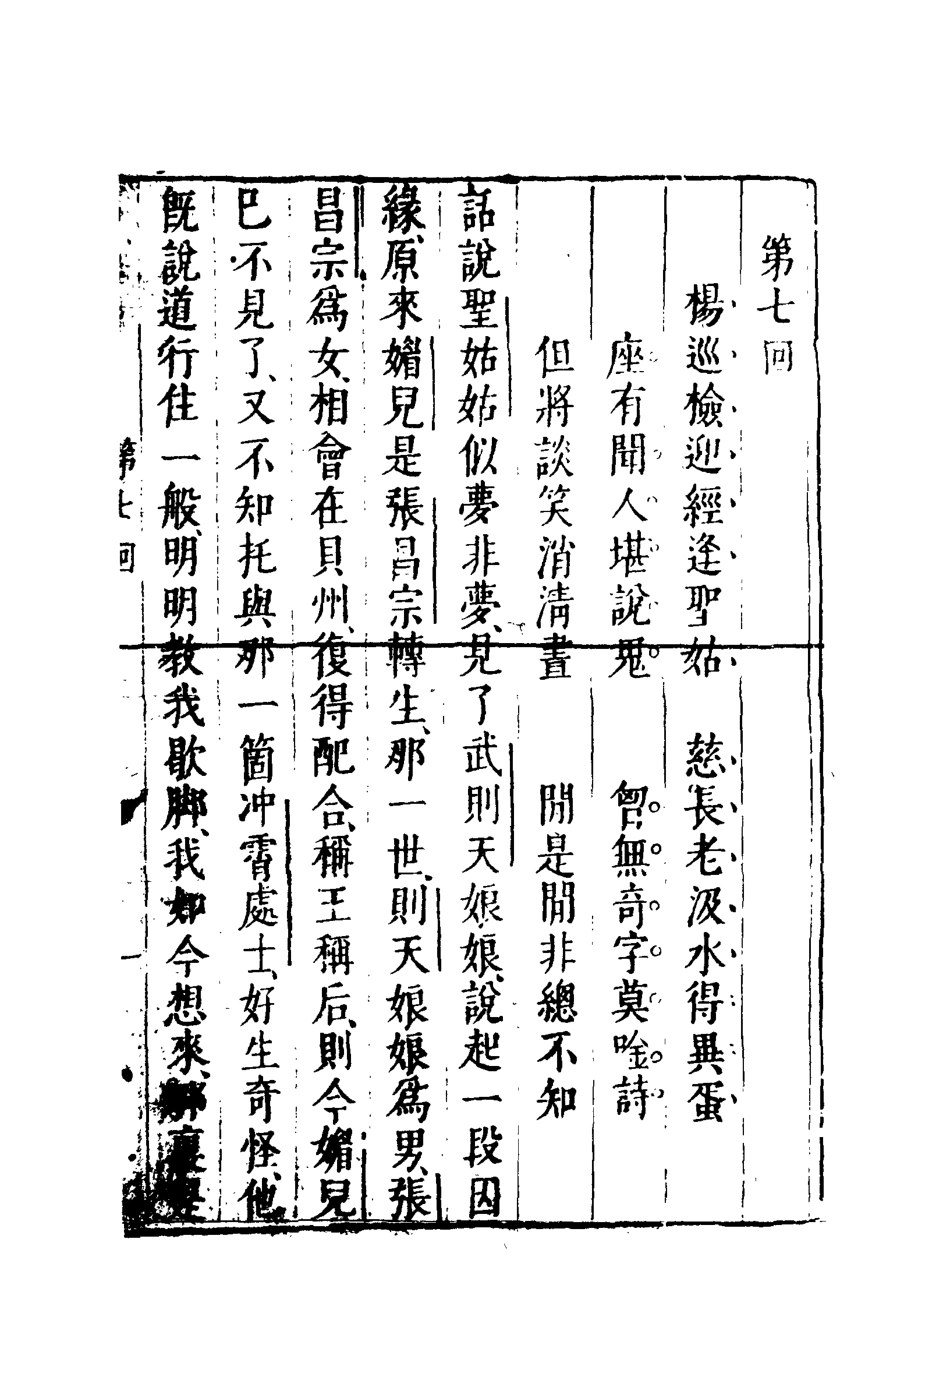 第七回
楊巡檢迎經逢聖姑　慈長老汲水得異蛋
座有聞人堪說鬼　囊無奇字莫唫詩
但將談笑消淸晝　閒是閒非總不知
話說聖姑姑似夢非夢、見了武則天娘娘、說起一段因
緣、原來媚兒是張昌宗轉生、那一世、則天娘娘爲男、張
昌宗爲女、相會在貝州、復得配合、稱王稱后、則今媚兒
已不見了、又不知托與那一箇冲霄處士、好生奇怪、他
旣說道行住一般、明明教我歇脚、我如今想來、那裏是
第七回
一